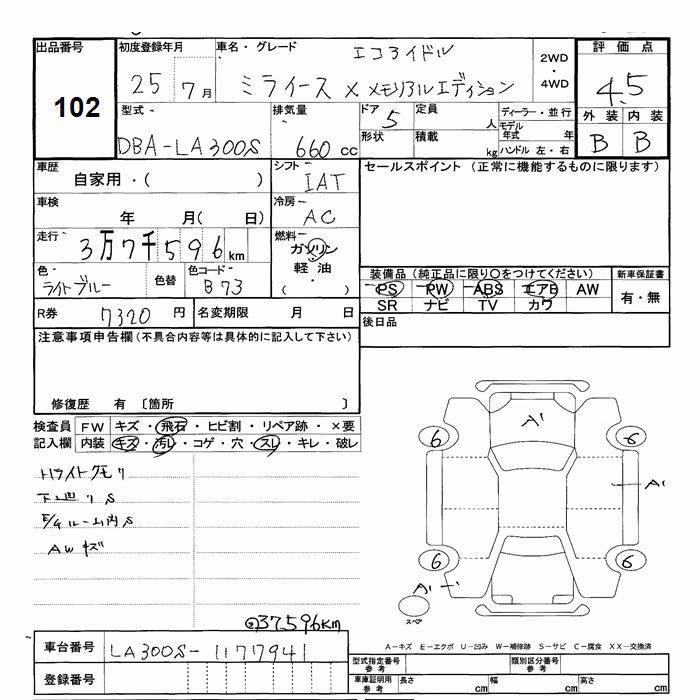 出品番号 102
初度登録年月 25 7月
車名・グレード エコアイドル
ミライース X メモリアルエディション
2WD・4WD
評価点 4.5
外装 内装
B B
型式 DBA-LA300S
排気量 660 cc
ドア 5
形状
定員 人
積載 kg
ディーラー・並行
モデル年式 年
ハンドル 左・右
車歴 自家用・( )
シフト IAT
セールスポイント (正常に機能するものに限ります)
車検 年 月( 日)
冷房 AC
走行 3万7千596km
燃料 ガソリン 軽油 ( ・ )
色 ライトブルー
色替
色コード B73
装備品(純正品に限り○をつけてください)
PS PW ABS エアB AW
SR ナビ TV カワ
新車保証書 有・無
R券 7320 円
名変期限 月 日
後日品
注意事項申告欄(不具合内容等は具体的に記入して下さい)
修復歴 有 〔箇所 〕
検査員記入欄
FW キズ・飛石・ヒビ割・リペア跡・×要
内装 キズ・汚レ・コゲ・穴・スレ・キレ・破レ
トライトクモリ
下廻りS
E/Gルーム内S
AWキズ
A1
6 6
A1
6 6
A1
スペア
37,596KM
車台番号 LA300S-11717941
登録番号
A-キズ E-エクボ U-凹み W-補修跡 S-サビ C-腐食 XX-交換済
型式指定番号 参考
類別区分番号 参考
車庫証明用 参考 長さ cm 幅 cm 高さ cm